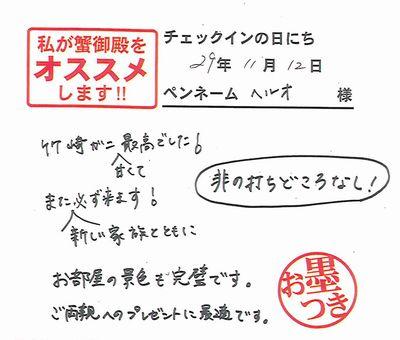 私が蟹御殿を
オススメ
します!!
チェックインの日にち
29年 11月 12日
ペンネーム ヘルオ 様
竹崎ガニ最高でした!
甘くて
また必ず来ます!
新しい家族とともに
非の打ちどころなし!
お部屋の景色も完璧です。
ご両親へのプレゼントに最適です。
お墨つき